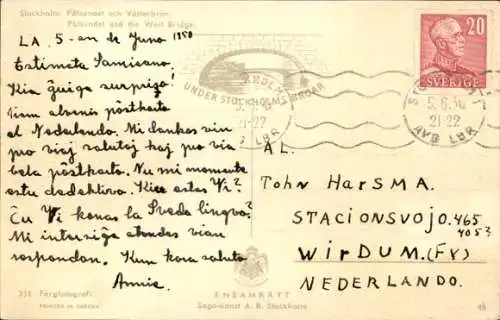 Stockholm. Pålsundet och Västerbron.
Pålsundet and the West Bridge.
LA 5-an de Juno 1950
Estimata Samicano,
Kia ĝuiga surprizo!
alvenis pöstkarto
al Nederlando. Mi dankas vin
pro viaj salutoj kaj pro via
bela pöstkarto. Nu mi momente
estu dedektivo. Kie estas Vi?
Ĉu Vi konas la Sveda lingvo?
Mi intersiĝe atendas vian
respondon. Kun kora saluto
Annie.
UNDER STOCKHOLMS BROAR
5.6.50
21-22
AVD LBR
20
SVERIGE
AL.
John HarSMA.
STACIONSVOJO.465
4053
WirDUM.(Fr)
NEDERLANDO.
331 Färgfotografi.
PRINTED IN SWEDEN
ENSAMRÄTT
Sago-konst A. B. Stockholm
48